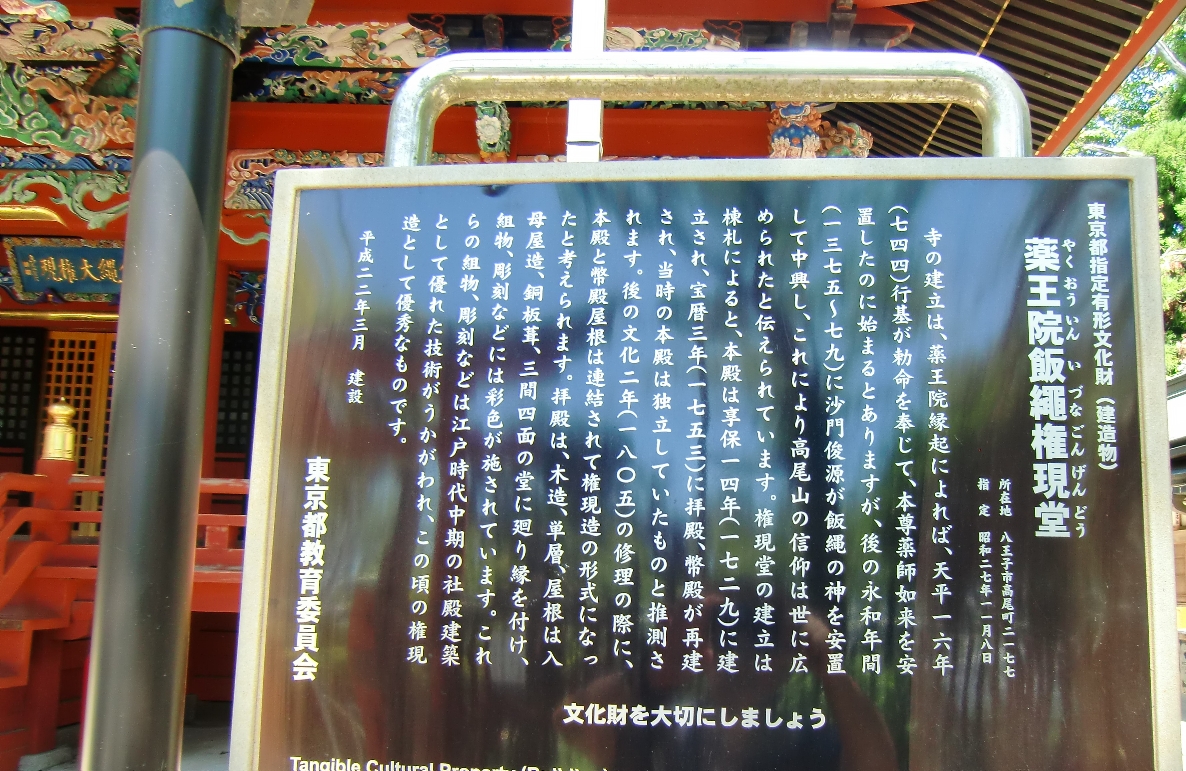 東京都指定有形文化財（建造物）
やくおういん　い　づなごんげんどう
薬王院飯縄権現堂
所在地　八王子市高尾町二一七七
指　定　昭和二七年一一月八日
寺の建立は、薬王院縁起によれば、天平一六年
（七四四）行基が勅命を奉じて、本尊薬師如来を安
置したのに始まるとありますが、後の永和年間
（一三七五～七九）に沙門俊源が飯縄の神を安置
して中興し、これにより高尾山の信仰は世に広
められたと伝えられています。権現堂の建立は
棟札によると、本殿は享保一四年（一七二九）に建
立され、宝暦三年（一七五三）に拝殿、幣殿が再建
され、当時の本殿は独立していたものと推測さ
れます。後の文化二年（一八〇五）の修理の際に、
本殿と幣殿屋根は連結されて権現造の形式になっ
たと考えられます。拝殿は、木造、単層、屋根は入
母屋造、銅板葺、三間四面の堂に廻り縁を付け、
組物、彫刻などには彩色が施されています。これ
らの組物、彫刻などは江戸時代中期の社殿建築
として優れた技術がうかがわれ、この頃の権現
造として優秀なものです。
平成二二年三月　建設
東京都教育委員会
文化財を大切にしましょう
Tangible Cultural Property
縄大権現